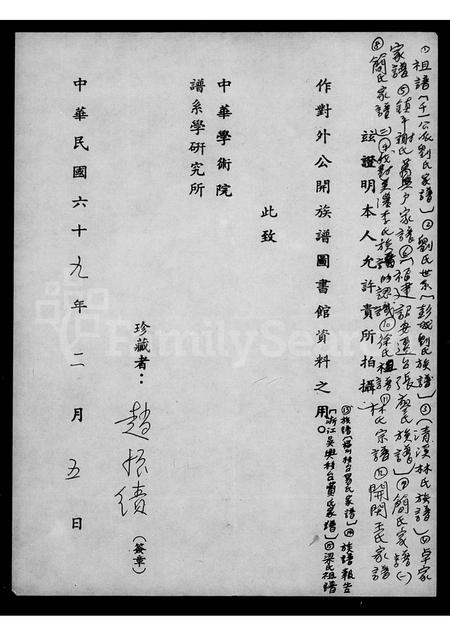 ①祖譜(千一公派劉氏家譜)②劉氏世系(彭城劉氏族譜)③(清溪林氏族譜)④卓家
家譜⑤鎮平謝氏 户家譜⑥(福建 張 氏族譜)⑦簡氏家譜(一)
⑧簡氏家譜(二)⑨ 李氏族譜的認識⑩徐氏祖譜⑪林氏宗譜⑫開閩王氏家譜
⑬族譜 ⑭族譜報告
(浙江吳興村台 氏家譜)⑮梁氏祖譜
茲證明本人允許貴所拍攝
作對外公開族譜圖書館資料之用。
此致
中華學術院
譜系學研究所
珍藏者：趙振績(簽章)
中華民國六十九年二月五日
FamilySearch